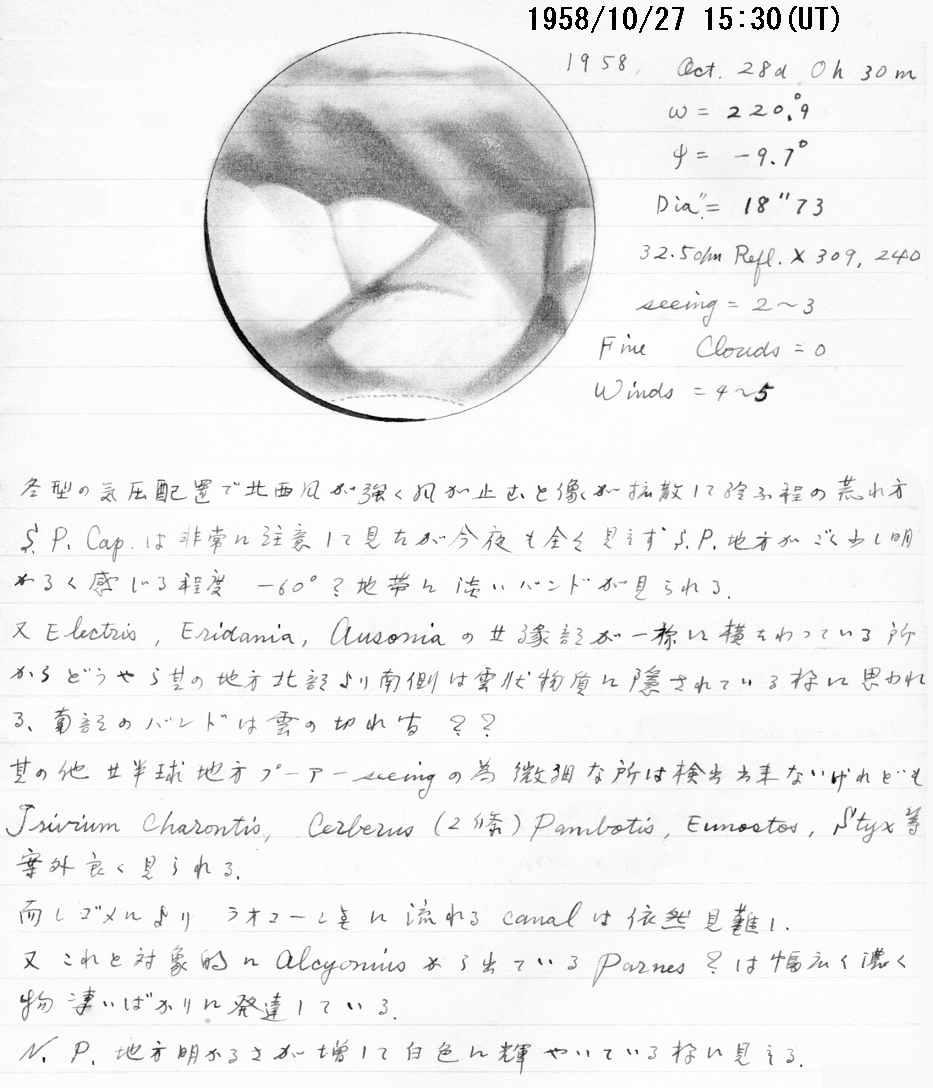 1958/10/27 15:30(UT)
1958, Oct. 28d 0h 30m
ω = 220.°9
φ = -9.7°
Dia".= 18"73
32.5cm Refl. X 309, 240
seeing = 2~3
Fine Clouds = 0
Winds = 4~5
冬型の気圧配置で北西風が強く風が止むと像が拡散して終ふ程の荒れ方
S. P. Cap. は非常に注意して見たが今夜も全く見えず S. P. 地方がごく少し明
かるく感じる程度 -60°?地帯に淡いバンドが見られる.
又 Electris, Eridania, Ausonia の 縁部が一様に横たわっている所
からどうやら其の地方北部より南側は雲状物質に隠されている様に思われ
る、南部のバンドは雲の切れ ??
其の他 半球地方プーアー seeing の為微細な所は検出出来ないけれども
Trivium Charontis, Cerberus (2條) Pambotis, Eunostos, Styx 等
案外良く見られる.
而しゴメルより ラオコーン に流れる canal は依然見難し.
又これと対象的に Alcyonius から出ている Parnes ? は幅広く濃く
物凄いばかりに発達している.
N. P. 地方明かるさが増して白色に輝やいている様に見える.